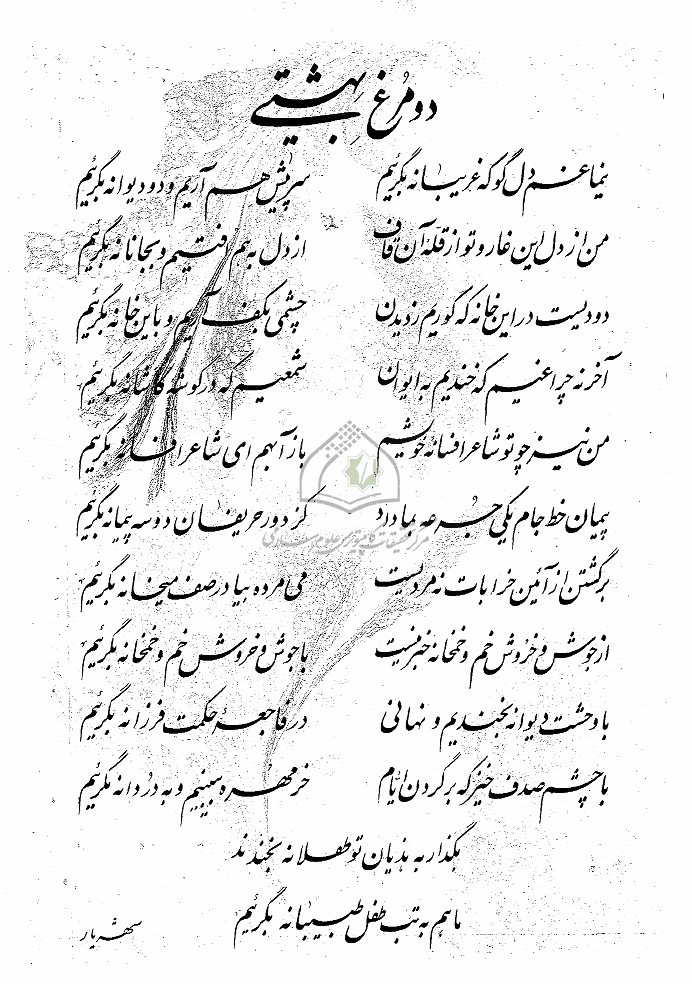 دو مرغ بهشتی
نیما غم دل گو که غریبانه بگرئیم سر پیش هم آریم و دو دیوانه بگرئیم
من از دل این غار و تو از قلهٔ آن قاف از دل بهم افتیم و بجانانه بگرئیم
دودیست در این خانه که کوریم زدیدن چشمی بکف آریم و باین خانه بگرئیم
آخر نه چراغیم که خندیم به ایوان شمعیم که در گوشهٔ کاشانه بگرئیم
من نیز چو تو شاعر افسانهٔ خویشم باز آ بهم ای شاعر افسانه بگرئیم
پیمان خط جام یکی جرعه بما داد کز دور حریفان دو سه پیمانه بگرئیم
برگشتن از آئین خرابات نه مردیست می مرده بیا در صف میخانه بگرئیم
از جوش و خروش خم و خمخانه خبر نیست با جوش و خروش خم و خمخانه بگرئیم
با وحشت دیوانه بخندیم و نهانی در فاجعهٔ حکمت فرزانه بگرئیم
با چشم صدف خیز که بر گردن ایام خرمهره ببینیم و به دردانه بگرئیم
بگذار به هذیان تو طفلانه بخندند
ما هم به تب طفل طبیبانه بگرئیم
شهریار
مرکز تحقیقات کامپیوتری علوم اسلامی